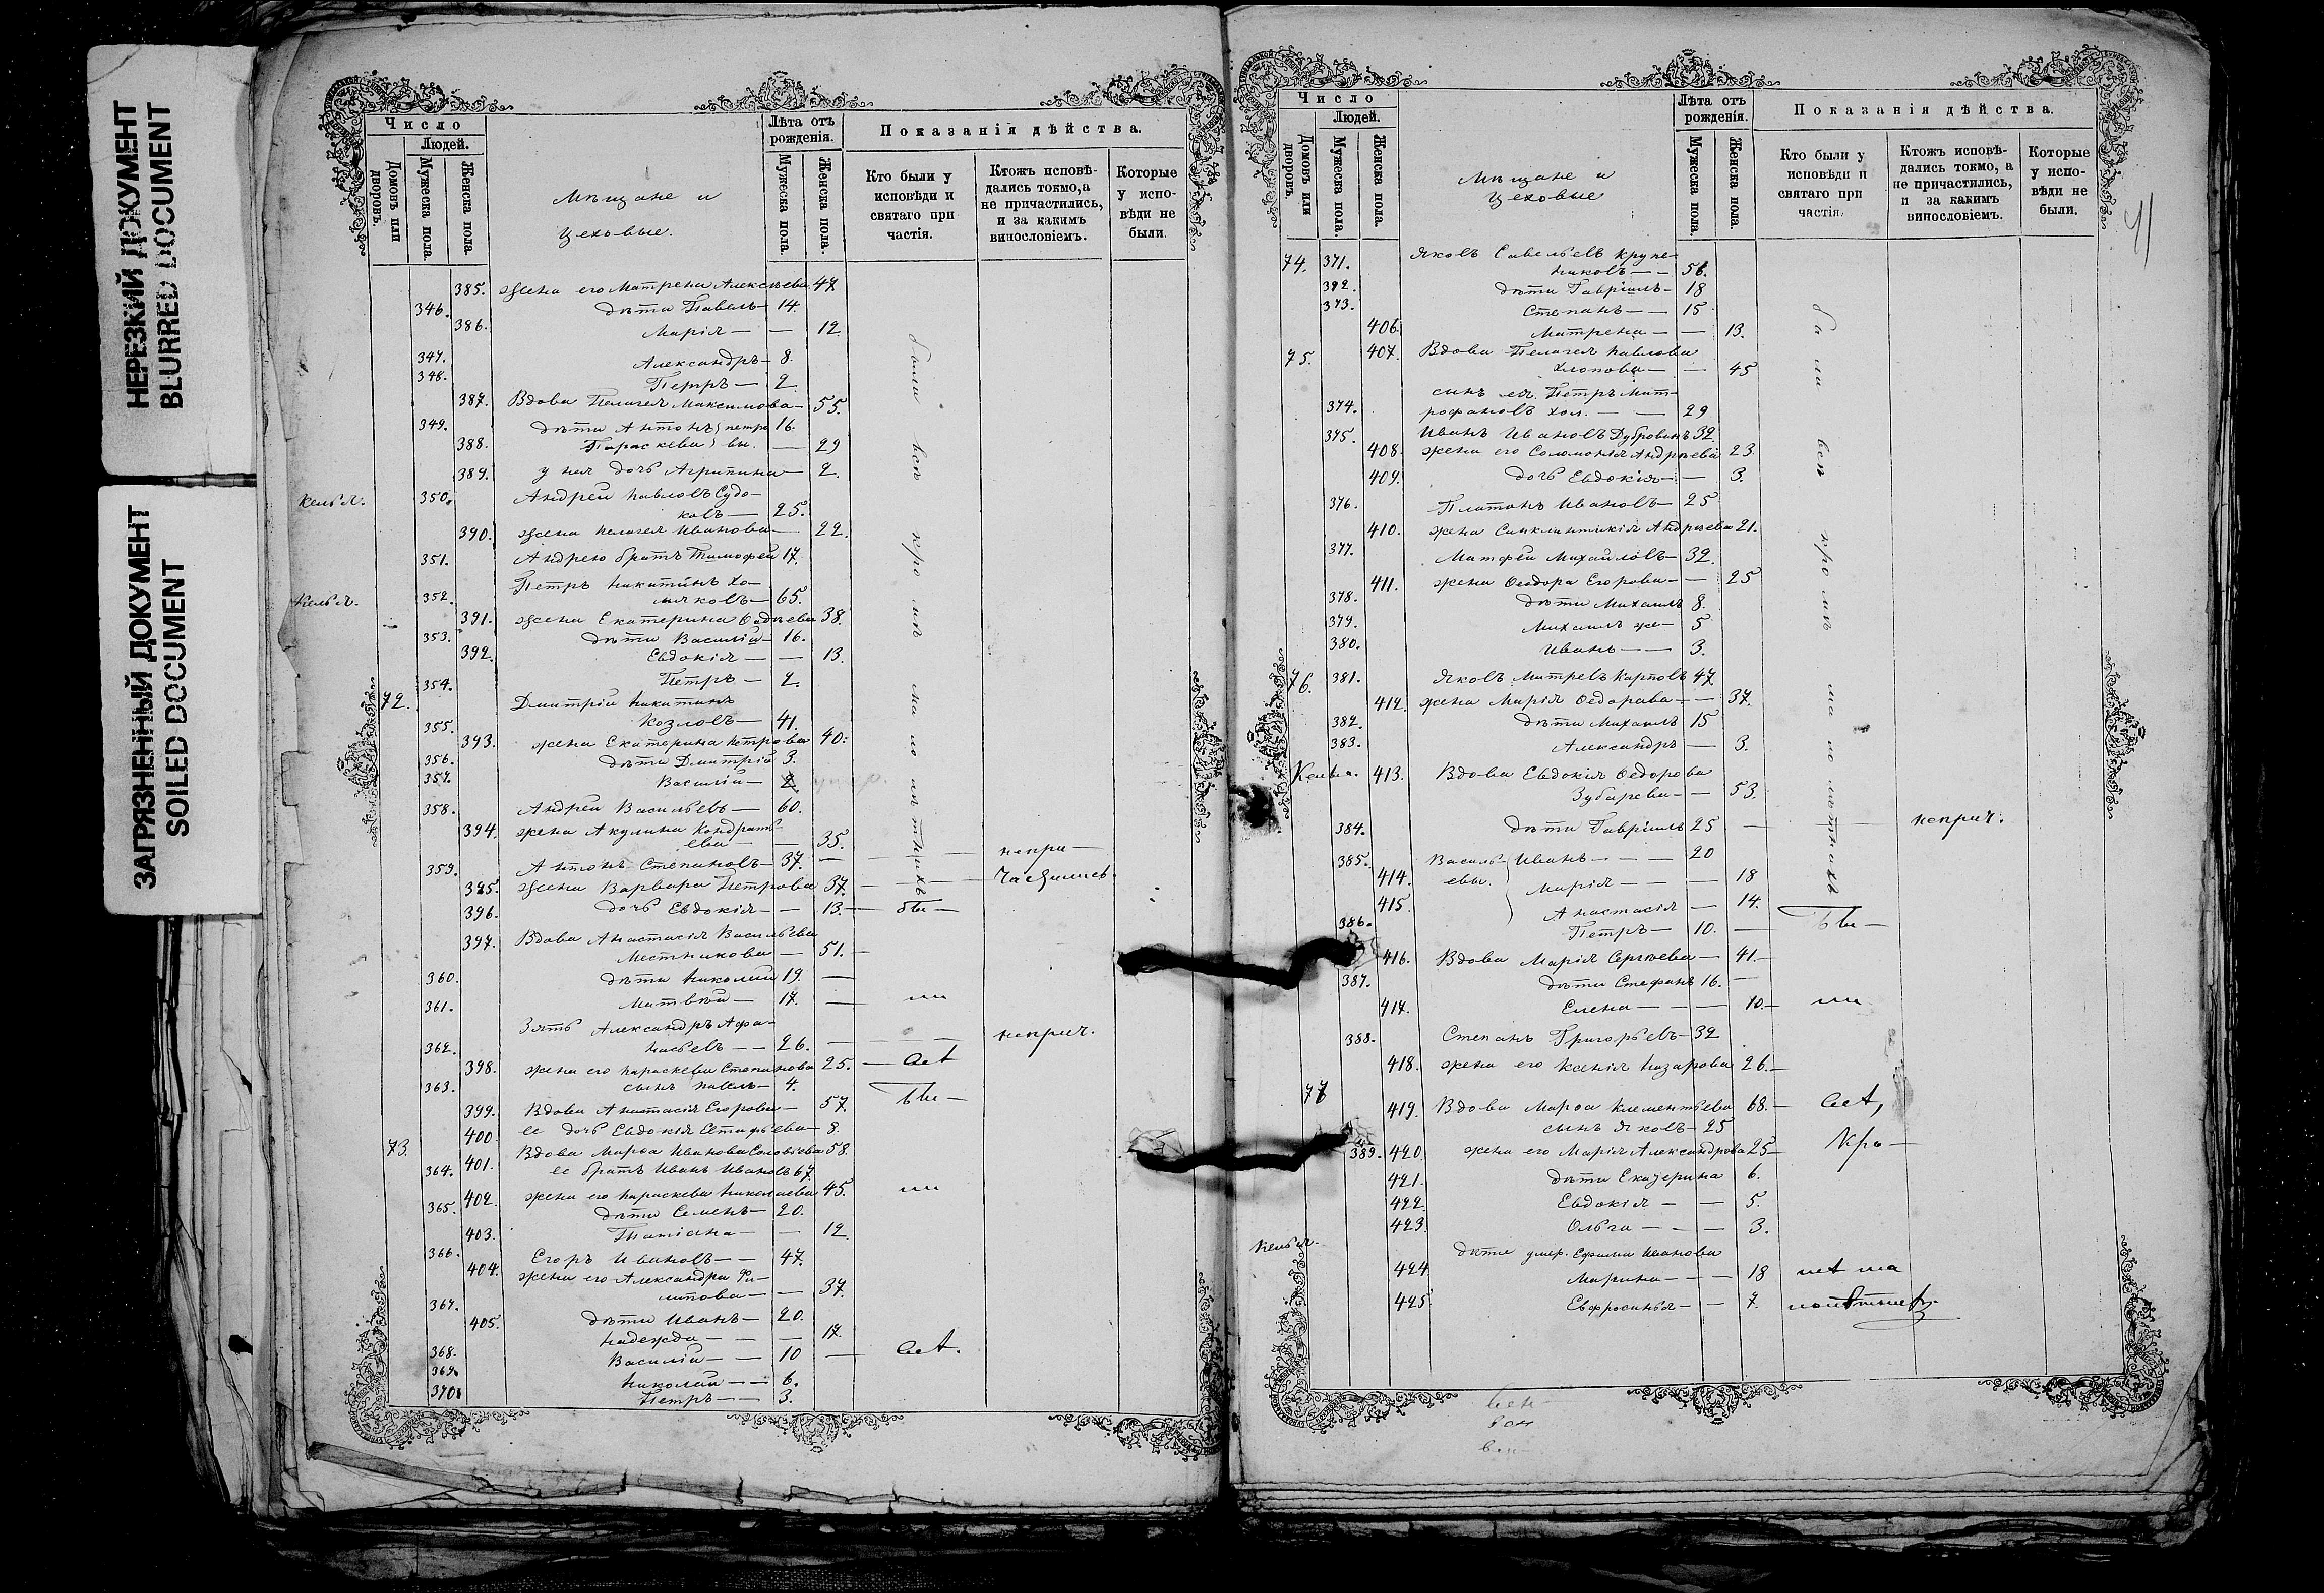 НЕРЕЗКИЙ ДОКУМЕНТ
BLURRED DOCUMENT
ЗАГРЯЗНЕННЫЙ ДОКУМЕНТ
SOILED DOCUMENT
Число
Людей.
Домовъ или дворовъ.
Мужеска пола.
Женска пола.
Мѣщане и
цеховые.
Лѣта отъ рожденія.
Мужеска пола.
Женска пола.
Показанія дѣйства.
Кто были у исповѣди и святаго при частія.
Ктожъ исповѣ-дались токмо, а не причастились, и за какимъ винословіемъ.
Которые у испо-вѣди не были.
385. жена его Матрена Алексѣева 47
346. дѣти Павелъ — 14.
386. Марія — — 12.
347. Александръ — 8.
348. Петръ — 2
387. Вдова Пелагея Максимова — 55.
349. дѣти Антонъ петро 16.
388. Параскева вы. — 29
389. у нея дочь Агрипина — 2.
Келья. 350. Андрей Павловъ Судо-
ковъ — 25.
390. жена Пелагея Иванова — 22.
351. Андрею братъ Тимофей 17.
Петръ Никитинъ Хо-
Келья. 352. мяковъ — 65.
391. жена Екатерина Фадѣева 38.
353. дѣти Василій — 16.
392. Евдокія — — 13.
354. Петръ — 2.
72. Дмитрій Никитинъ
355. Козловъ — 41.
393. жена Екатерина Петрова 40.
356. дѣти Дмитрій 3.
357. Василій — 2 умер.
358. Андрей Васильевъ — 60.
394. жена Акулина Кондрать-
ева — — 35.
359. Антонъ Степановъ — 37. — непри —
395. жена Варвара Петрова 37. — частились.
396. дочь Евдокія — — 13. — бы —
397. Вдова Анастасія Васильева
Местникова — 51. —
360. дѣти Николай 19. —
361. Матвѣй — 17. — ли
Зять Александръ Афа-
362. насьевъ — — 26. — неприч.
398. жена его Параскева Степанова 25. — всѣ
363. сынъ Павелъ — 4.
399. Вдова Анастасія Егорова — 57. бы —
400. ее дочь Евдокія 8.
73. 401. Вдова Марѳа Иванова Соловіова 58.
364. ее братъ Иванъ Ивановъ 67.
402. жена его Параскева Николаева 45. ли
365. дѣти Семенъ — 20.
403. Татіана — — 12.
366. Егоръ Ивановъ — — 47.
404. жена его Александра Фи-
липова — — 37.
367. дѣти Иванъ — 20.
405. Надежда — — — 17.
368. Василій — — 10 — всѣ.
369. Николай — — 6.
370. Петръ — — 3.
были всѣ кромѣ малолѣтнихъ
41
Число
Людей.
Домовъ или дворовъ.
Мужеска пола.
Женска пола.
Мѣщане и
цеховые
Лѣта отъ рожденія.
Мужеска пола.
Женска пола.
Показанія дѣйства.
Кто были у исповѣди и святаго при частія.
Ктожъ исповѣ-дались токмо, а не причастились, и за какимъ винословіемъ.
Которые у испо-вѣди не были.
74. 371. Яковъ Савельевъ Крупе-
никовъ — — 56.
372. дѣти Гавріилъ — 18
373. Степанъ — — 15
406. Матрена — — 13.
75. 407. Вдова Пелагея Павлова
Хлопова — — 45
сынъ ея Петръ Мит-
374. рофановъ Хол. — — 29
375. Иванъ Ивановъ Дубровинъ 32.
408. жена его Соломонія Андреева 23.
409. дочь Евдокія — — 3.
376. Платонъ Ивановъ — 25
410. жена Синклитикія Андреева 21.
377. Матфей Михайловъ — 32.
411. жена Ѳеодора Егорова — — 25
378. дѣти Михаилъ 8.
379. Михаилъ же — 5
380. Иванъ — — 3.
76. 381. Яковъ Митревъ Карповъ 47
412. жена Марія Ѳедорова — — 37.
382. дѣти Михаилъ 15
383. Александръ — 3.
Келья. 413. Вдова Евдокія Ѳедорова
Зубарева — — 53.
384. дѣти Гавріилъ 25 — неприч.
385. Василь- Иванъ — — — 20
414. евы. Марія — — — 18
415. Анастасія — 14.
386. Петръ — 10. — бы —
416. Вдова Марія Сергѣева — 41. —
387. дѣти Стефанъ 16. —
417. Елена — — — 10. — ли
388. Степанъ Григорьевъ — 32
418. жена его Ксенія Назарова 26. —
77 419. Вдова Марѳа Клементьева 68. — всѣ,
сынъ Яковъ — 25
389. 420 жена его Марія Александрова 25 — кро —
421. дѣти Екатерина 6.
422. Евдокія — — 5.
423. Ольга — — — 3.
Келья. дѣти умер. Ефима Иванова
424 Марина — — — 18 мѣ ма
425. Евфросинья — — 7. лолѣтнихъ
были всѣ кромѣ малолѣтнихъ